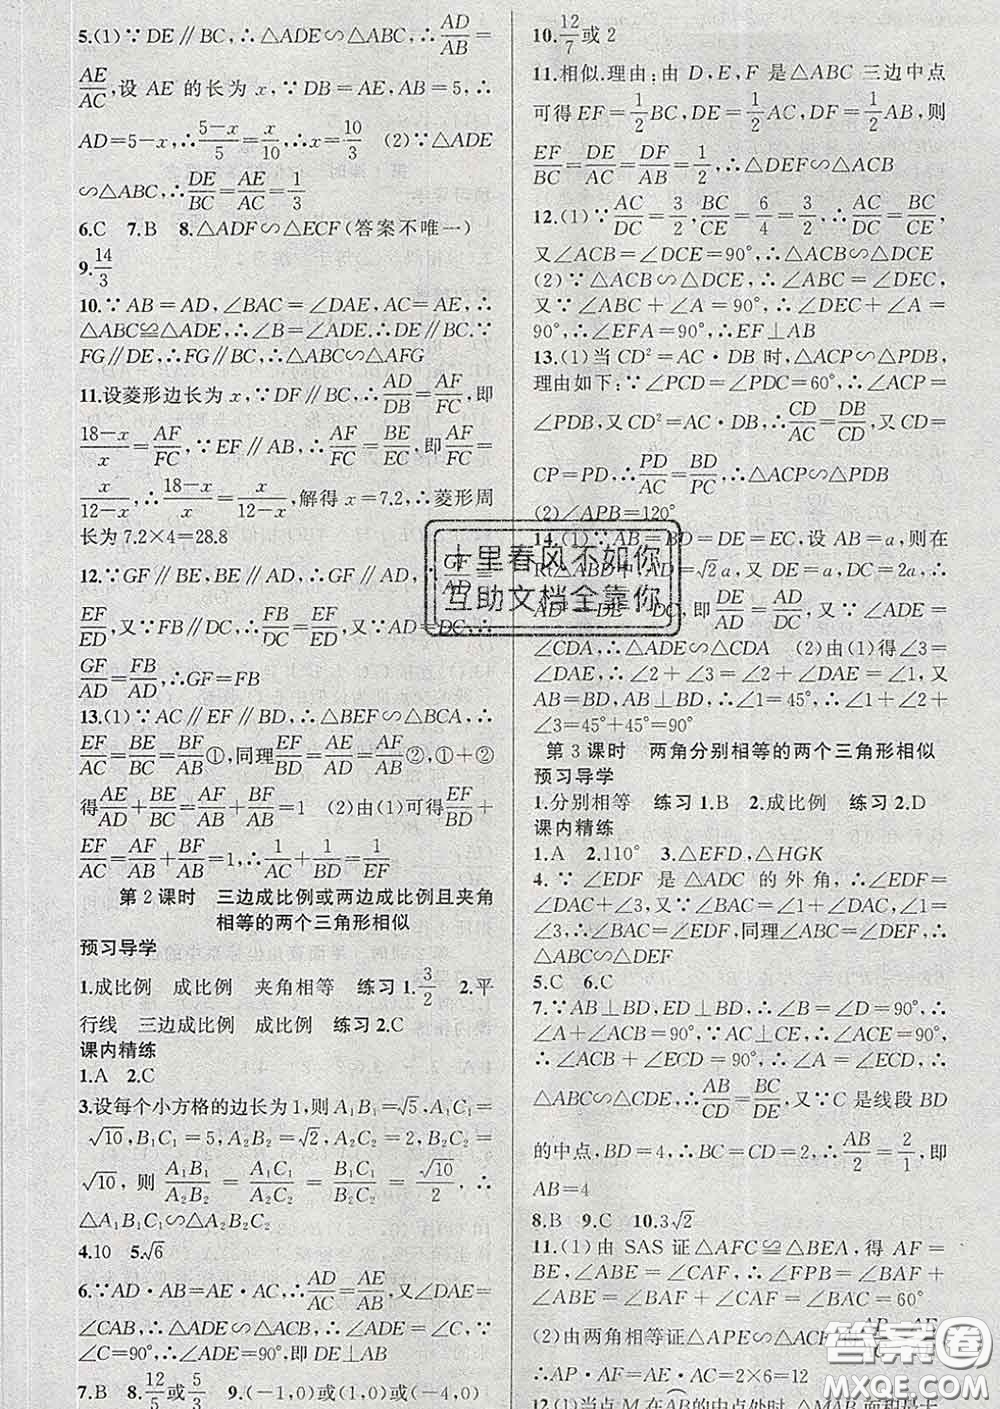 5.(1)∵DE∥BC,∴△ADE∽△ABC,∴AD/AB=
AE/AC,设 AE 的长为 x,∵DB=AE,AB=5,∴
AD=5-x,∴(5-x)/5=x/10,∴x=10/3 (2)∵△ADE
∽△ABC,∴DE/BC=AE/AC=1/3
6.C 7.B 8.△ADF∽△ECF(答案不唯一)
9.14/3
10.∵AB=AD,∠BAC=∠DAE,AC=AE,∴
△ABC≌△ADE,∴∠B=∠ADE,∴DE∥BC.∵
FG∥DE,∴FG∥BC,∴△ABC∽△AFG
11.设菱形边长为 x,∵DF∥BC,∴AD/DB=AF/FC,即
(18-x)/x=AF/FC,∵EF∥AB,∴AF/FC=BE/EC,即AF/FC=
x/(12-x),∴(18-x)/x=x/(12-x),解得 x=7.2,∴菱形周
长为 7.2×4=28.8
12.∵GF∥BE,AB∥DE,∴GF∥DE,∴GF/AD=
EF/ED,又∵FB∥DC,∴FB/DC=EF/ED,又∵AD=DC,∴
GF/AD=FB/AD,∴GF=FB
13.(1)∵AC∥EF∥BD,∴△BEF∽△BCA,∴
EF/AC=BE/BC=BF/AB①,同理EF/BD=AE/AD=AF/AB②,①+②
得AE/AD+BE/BC=AF/AB+BF/AB=1 (2)由(1)可得EF/BD+
EF/AC=AF/AB+BF/AB=1,∴1/AC+1/BD=1/EF
第 2 课时 三边成比例或两边成比例且夹角
相等的两个三角形相似
预习导学
1.成比例 成比例 夹角相等 练习 1.3/2 2.平
行线 三边成比例 成比例 练习 2.C
课内精练
1.A 2.C
3.设每个小方格的边长为 1,则 A₁B₁=√5,A₁C₁=
√10,B₁C₁=5,A₂B₂=√2,A₂C₂=2,B₂C₂=
√10,则 A₁B₁/A₂B₂=A₁C₁/A₂C₂=B₁C₁/B₂C₂=√10/2,∴
△A₁B₁C₁∽△A₂B₂C₂
4.10 5.√6
6.∵AD·AB=AE·AC,∴AD/AC=AE/AB,又∠DAE=
∠CAB,∴△ADE∽△ACB,∴∠ADE=∠C,∵
∠C=90°,∴∠ADE=90°,即DE⊥AB
7.B 8.12/5或5/3 9.(-1,0)或(1,0)或(-4,0)
10.12/7或 2
11.相似.理由:由 D,E,F 是△ABC 三边中点
可得 EF=1/2BC,DE=1/2AC,DF=1/2AB,则
EF/BC=DE/AC=DF/AB=1/2,∴△DEF∽△ACB
12.(1)∵AC/DC=3/2,BC/CE=6/4=3/2,∴AC/DC=BC/CE,
又∠ACB=∠DCE=90°,∴△ACB∽△DCE
(2)∵△ACB∽△DCE,∴∠ABC=∠DEC,
又∵∠ABC+∠A=90°,∴∠DEC+∠A=
90°,∴∠EFA=90°,∴EF⊥AB
13.(1)当 CD²=AC·DB 时,△ACP∽△PDB,
理由如下:∵∠PCD=∠PDC=60°,∴∠ACP=
∠PDB,又 CD²=AC·DB,∴CD/AC=DB/CD,又CD=
CP=PD,∴PD/AC=BD/PC,∴△ACP∽△PDB
(2)∠APB=120°
14.(1)∵AB=BD=DE=EC,设 AB=a,则在
Rt△ABD中,AD=√2a,DE=a,DC=2a,∴
AD=DE=DC,即DE/AD=AD/DC,又∵∠ADE=
∠CDA,∴△ADE∽△CDA (2)由(1)得∠3=
∠DAE,∴∠2+∠3=∠2+∠DAE=∠1,又
AB=BD,AB⊥BD,∴∠1=45°,∴∠1+∠2+
∠3=45°+45°=90°
第 3 课时 两角分别相等的两个三角形相似
预习导学
1.分别相等 练习 1.B 2.成比例 练习 2.D
课内精练
1.A 2.110° 3.△EFD,△HGK
4.∵∠EDF 是△ADC 的外角,∴∠EDF=
∠DAC+∠3,又∠BAC=∠DAC+∠1,∠1=
∠3,∴∠BAC=∠EDF,同理∠ABC=∠DEF,
∴△ABC∽△DEF
5.C 6.C
7.∵AB⊥BD,ED⊥BD,∴∠B=∠D=90°,∴
∠A+∠ACB=90°,∵AC⊥CE,∴∠ACE=90°,
∴∠ACB+∠ECD=90°,∴∠A=∠ECD,∴
△ABC∽△CDE,∴AB/CD=BC/DE,又∵C 是线段 BD
的中点,BD=4,∴BC=CD=2,∴AB/2=2/1,即
AB=4
8.B 9.C 10.3√2
11.(1)由 SAS 证△AFC≌△BEA,得 AF=
BE,∠ABE=∠CAF,∴∠FPB=∠BAF+
∠ABE=∠BAF+∠CAF=∠BAC=60°
(2)由两角相等证△APE∽△ACF,
∴AP·AF=AE·AC=2×6=12
12.(1)当点 M 在AB的中点处时,△MAB 面积最大
十里春风不如你
互助文档全靠你
答案圈
MXQE.COM